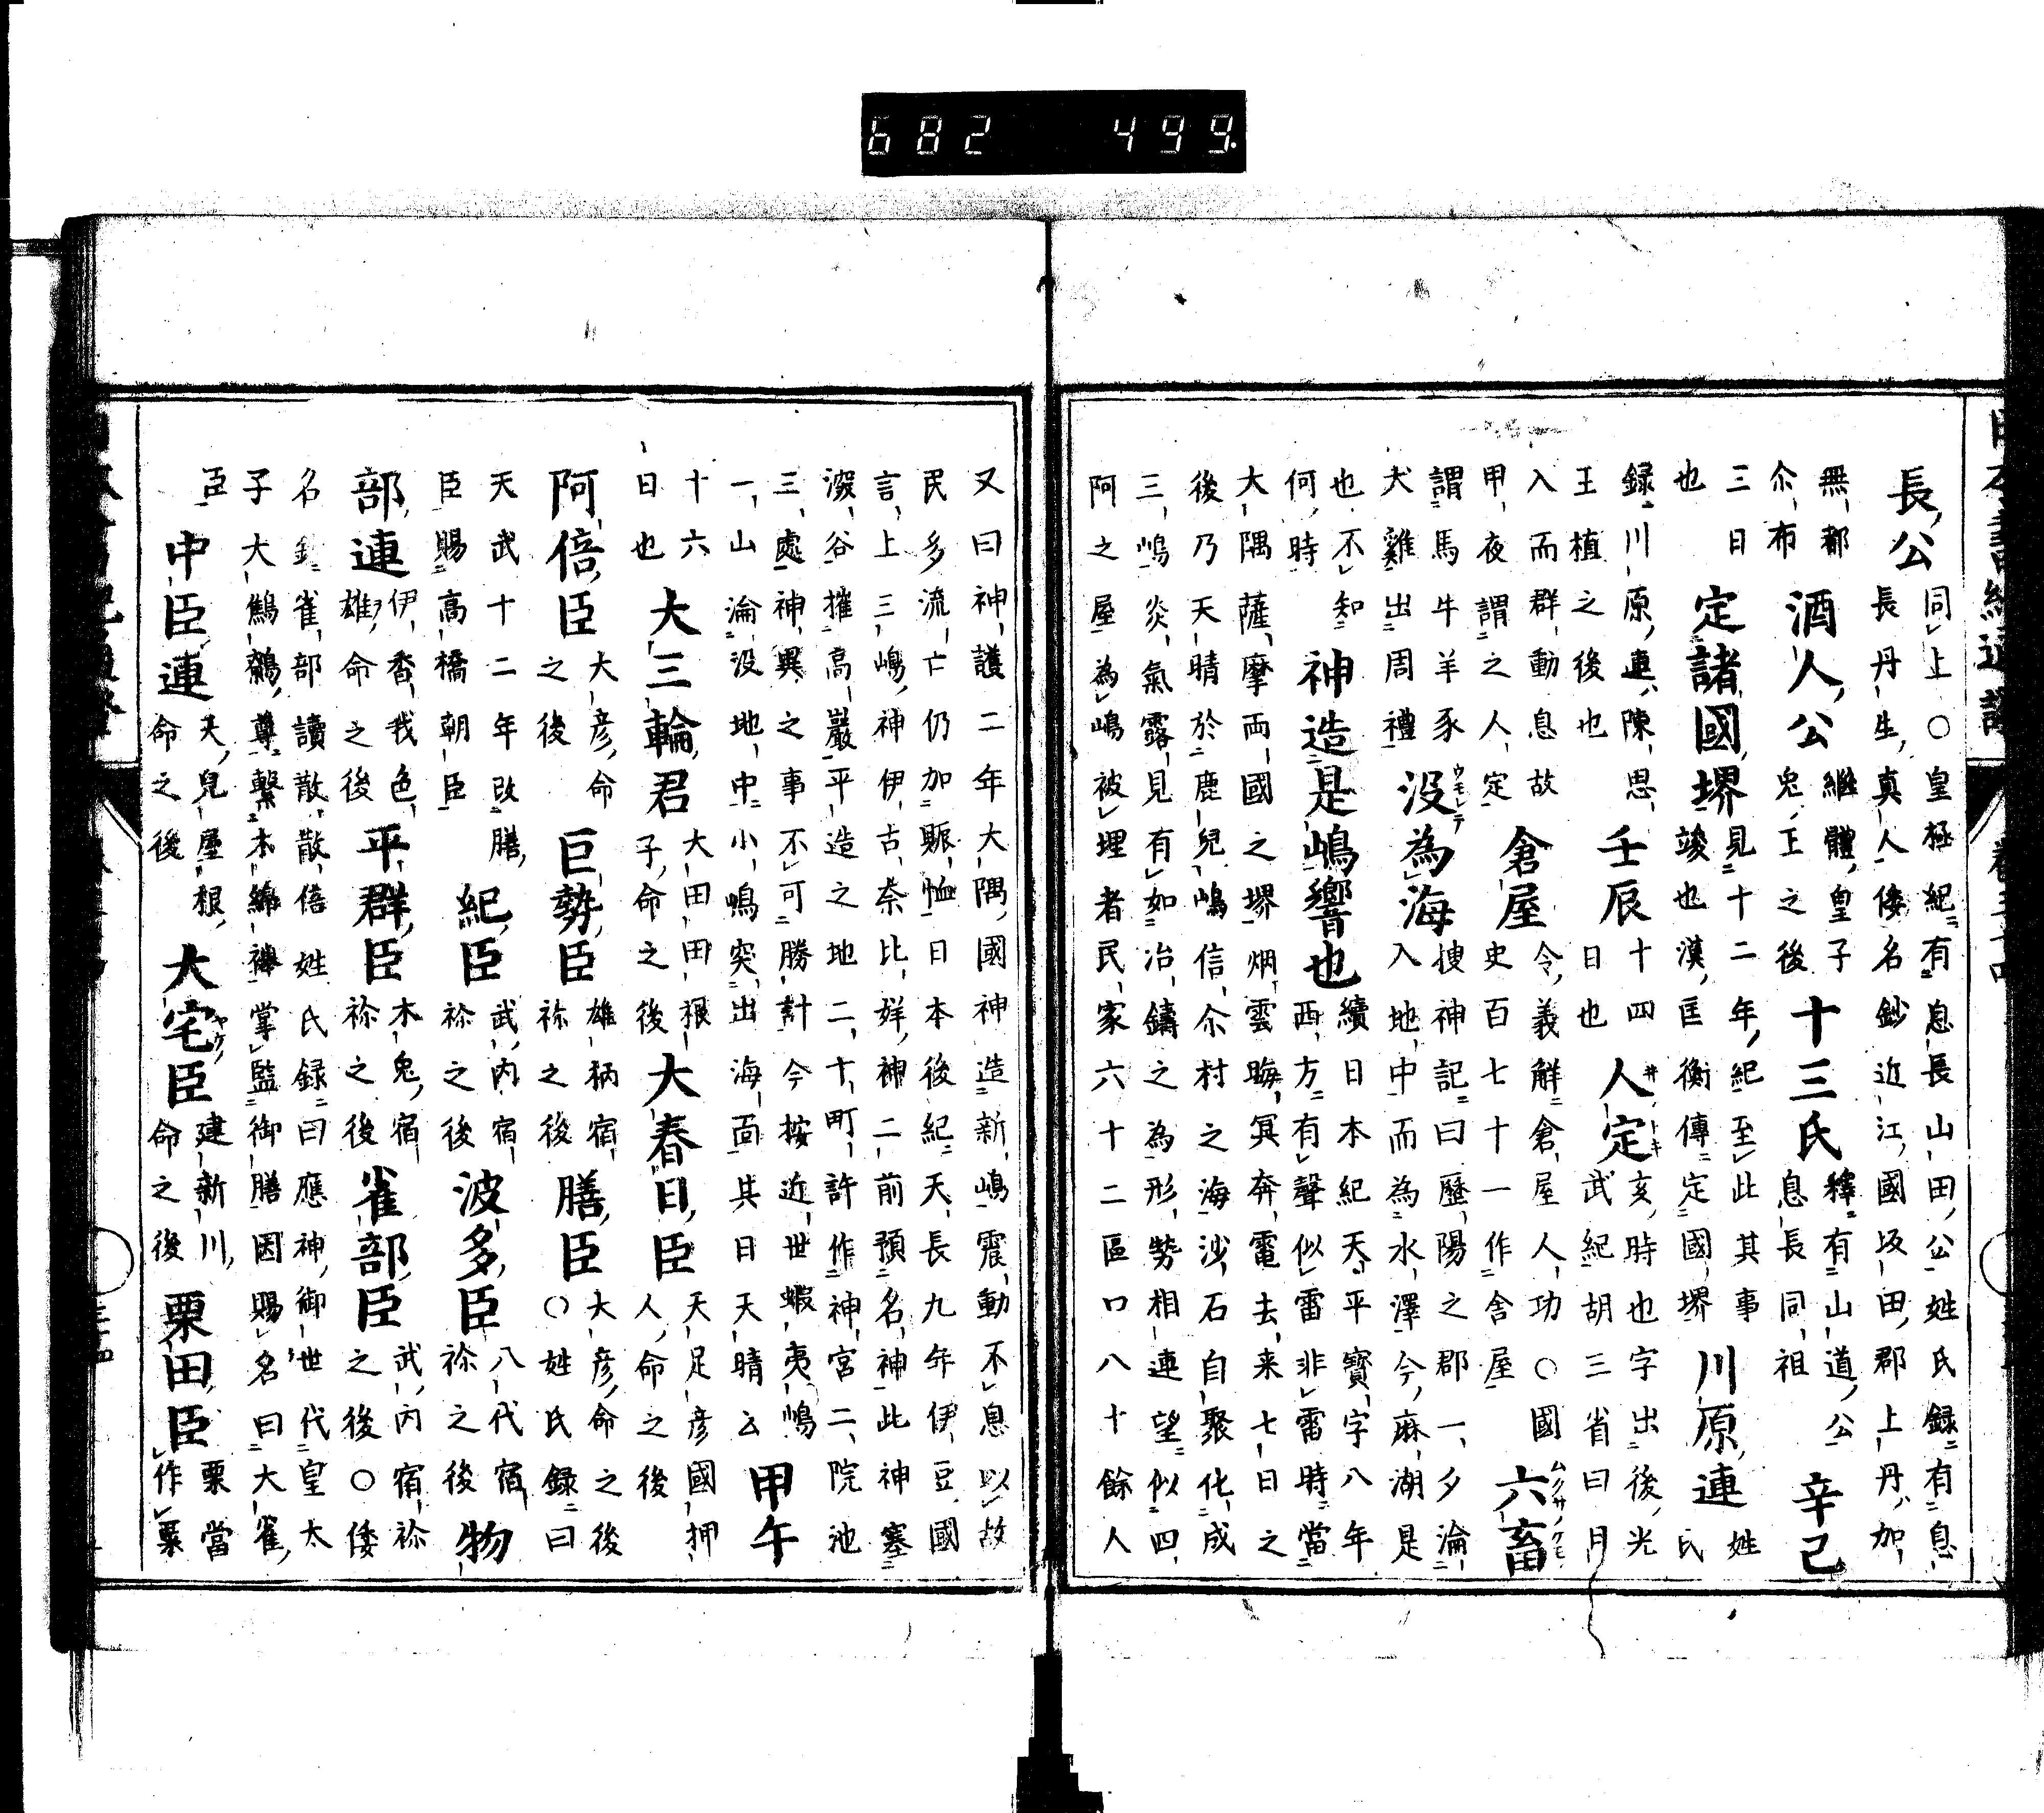 日本書紀通證
長公
同上○皇極紀有息長山田公姓氏録有息
長丹生真人倭名鈔近江國坂田郡上丹加
無都
尒布
酒人公
繼體皇子
兎王之後
十三氏
釋有山道公
息長同祖
辛已
三日
也
定諸國堺
見十二年紀至此其事
竣也漢匡衡傳定國堺
川原連
姓
氏
録川原連陳思
王植之後也
壬辰
十四
日也
人定
亥時也字出後光
武紀胡三省曰月
入而群動息故
甲夜謂之人定
倉屋
令義解倉屋人功○國
史百七十一作舎屋
六畜
ムクサノケモ
謂馬牛羊豕
犬雞出周禮
没為海
ウモレテ
捜神記曰歴陽之郡一夕淪
入地中而為水澤今麻湖是
也不知
何時
神造是嶋響也
續日本紀天平寶字八年
西方有聲似雷非雷時當
大隅薩摩両國之堺烟雲晦冥奔電去来七日之
後乃天晴於鹿兒嶋信尒村之海沙石自聚化成
三嶋炎氣露見有如冶鑄之為形勢相連望似四
阿之屋為嶋被埋者民家六十二區口八十餘人
又曰神護二年大隅國神造新嶋震動不息以故
民多流亡仍加賑恤日本後紀天長九年伊豆國
言上三嶋神伊古奈比咩神二前預名神此神塞
深谷摧高巖平造之地二十町許作神宮二院池
三處神異之事不可勝計今按近世蝦夷嶋
一山淪没地中小嶋突出海面其日天晴云
甲午
十六
日也
大三輪君
大田田根
子命之後
大春日臣
天足彦國押
人命之後
阿倍臣
大彦命
之後
巨勢臣
雄柄宿
祢之後
膳臣
大彦命之後
○姓氏録曰
天武十二年改膳
臣賜高橋朝臣
紀臣
武内宿
祢之後
波多臣
八代宿
祢之後
物
部連
伊香我色
雄命之後
平群臣
木兎宿
祢之後
雀部臣
武内宿祢
之後○倭
名鈔雀部讀散散倍姓氏録曰應神御世代皇太
子大鷦鷯尊繫木綿襷掌監御膳因賜名曰大雀
臣
中臣連
天兒屋根
命之後
大宅臣
建新川
命之後
栗田臣
栗當
作粟
682 499